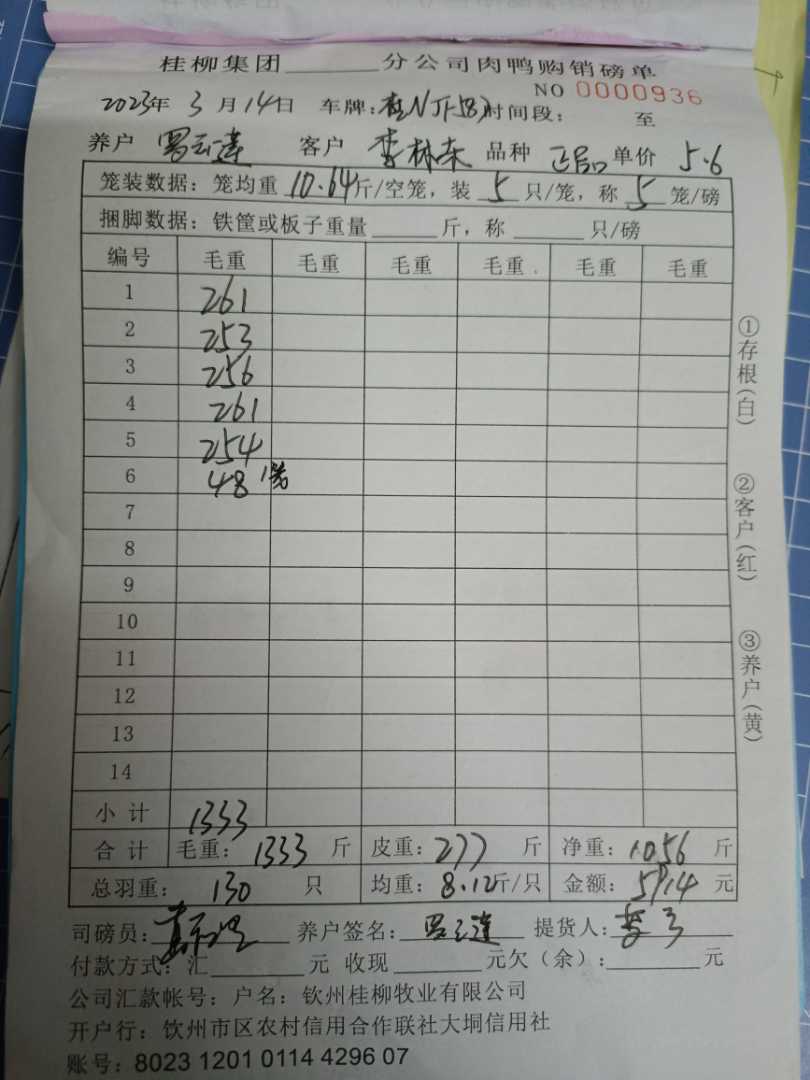 桂柳集团______分公司肉鸭购销磅单
NO 0000936
2023年 3月14日 车牌: 时间段: 至
养户 罗云莲 客户 李林东 品种 正品 单价 5.6
笼装数据：笼均重 10.64斤/空笼，装 5 只/笼，称 5 笼/磅
捆脚数据：铁筐或板子重量______斤，称______只/磅
编号 毛重 毛重 毛重 毛重 毛重 毛重
1 261
2 253
3 256
4 261
5 254
6 48 1笼
7
8
9
10
11
12
13
14
小计 1333
合计 毛重： 1333 斤 皮重：277 斤 净重：1056 斤
总羽重： 130 只 均重：8.12斤/只 金额：5914元
司磅员： 养户签名：罗云莲 提货人：
付款方式：汇______元 收现______元欠（余）：______元
公司汇款帐号：户名：钦州桂柳牧业有限公司
开户行：饮州市区农村信用合作联社大垌信用社
账号：8023 1201 0114 4296 07
①存根（白）
②客户（红）
③养户（黄）